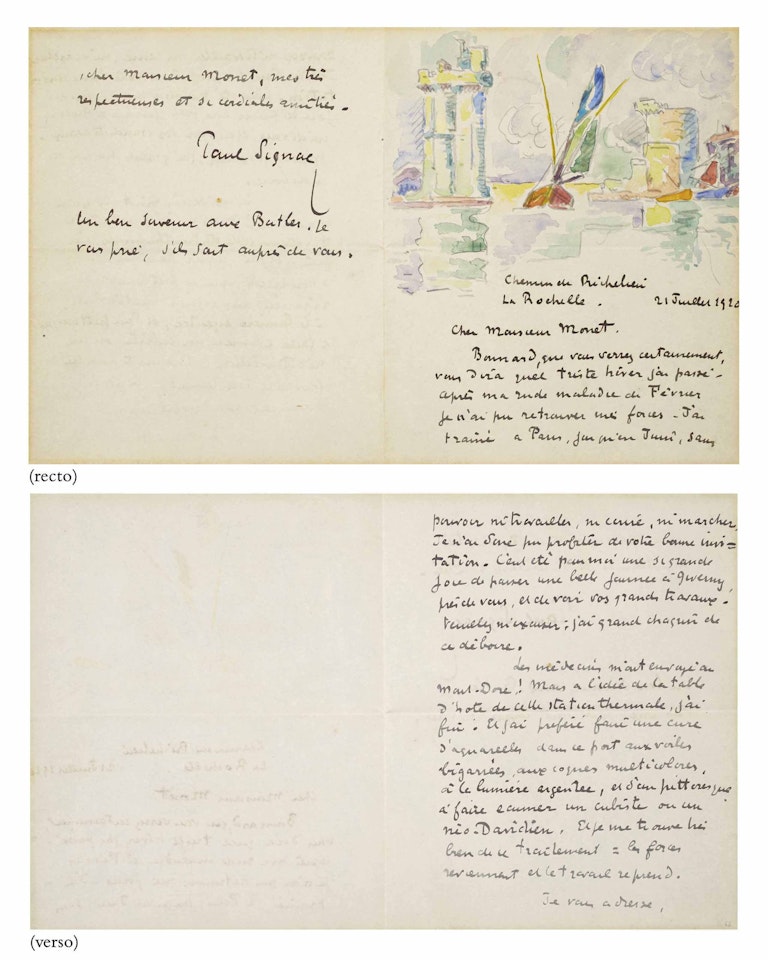 cher Monsieur Monet, mes très
respectueuses et si cordiales amitiés.
Paul Signac
Un bon souvenir aux Butler. Je
vous prie, s'ils sont auprès de vous.
Chemin de Richelieu
La Rochelle. 21 Juillet 192
Cher Monsieur Monet.
Bonnard, que vous verrez certainement,
vous dira quel triste hiver j'ai passé -
après ma rude maladie de Février
je n'ai pu retrouver mes forces - J'ai
traîné à Paris, jusqu'en Juin, sans
(recto)
pouvoir ni travailler, ni, ni marcher.
Je n'ai donc pu profiter de votre bonne invi=
tation. C'eut été pour moi une si grande
joie de passer une belle journée à Giverny,
près de vous, et de voir vos grands travaux -
m'excuser; j'ai grand chagrin de
ce déboire.
Les médecins m'ont envoyé au
Mont-Dore! Mais à l'idée de la table
d'hôte de cette station thermale, j'ai
fui: Et j'ai préféré faire une cure
d'aquarelles dans ce port aux voiles
bigarrées, aux coques multicolores,
à la lumière argentée, et d'un pittoresque
à faire écumer un cubiste ou un
néo-Davidien. Et je me trouve très
bien de ce traitement = les forces
reviennent et le travail reprend.
Je vous adresse,
(verso)